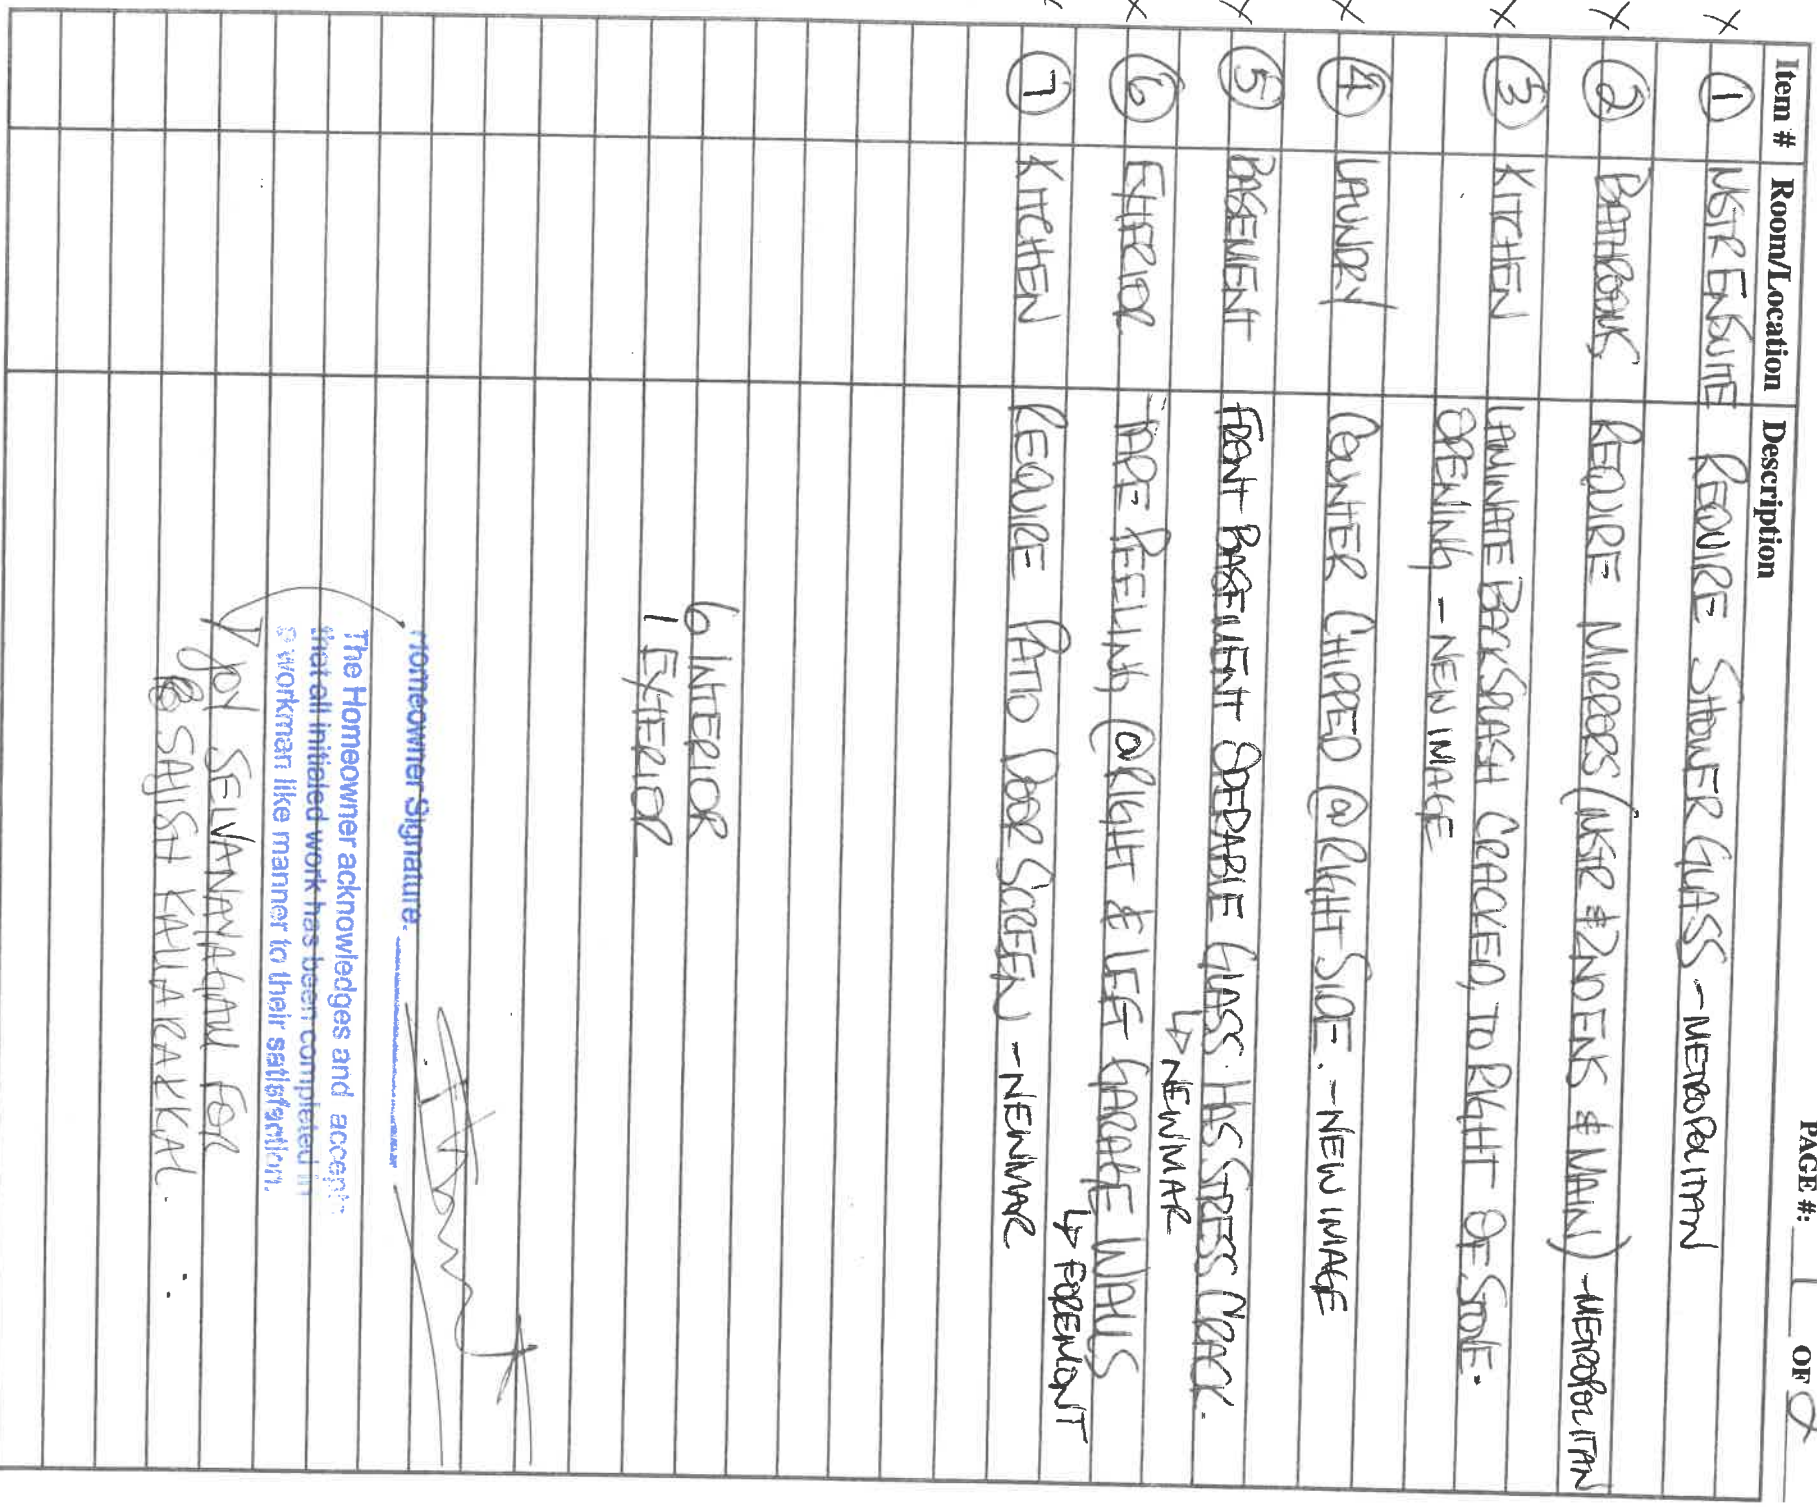 PAGE #: 1 OF
Item # Room/Location Description
X 1 MSTR ENSUITE REQUIRE SHOWER GLASS - METROPOLITAN
X 2 BATHROOMS REQUIRE MIRRORS (MSTR & 2ND ENS & MAIN) - METROPOLITAN
X 3 KITCHEN LAMINATE BACKSPLASH CRACKED, TO RIGHT OF STOVE.
OPENING - NEW IMAGE
X 4 LAUNDRY COUNTER CHIPPED @ RIGHT SIDE. - NEW IMAGE
X 5 BASEMENT FRONT BASEMENT OPERABLE GLASS HAS STRESS CRACK.
↳ NEWMAR
X 6 EXTERIOR TAPE PEELING @ RIGHT & LEFT GARAGE WALLS
↳ FOREMONT
7 KITCHEN REQUIRE PATIO DOOR SCREEN - NEWMAR
6 INTERIOR
1 EXTERIOR
Homeowner Signature.
The Homeowner acknowledges and accept
that all initialed work has been completed in
a workman like manner to their satisfaction.
JOY SELVANAYAGAM FOR
SAJISH KALLARAKKAL.